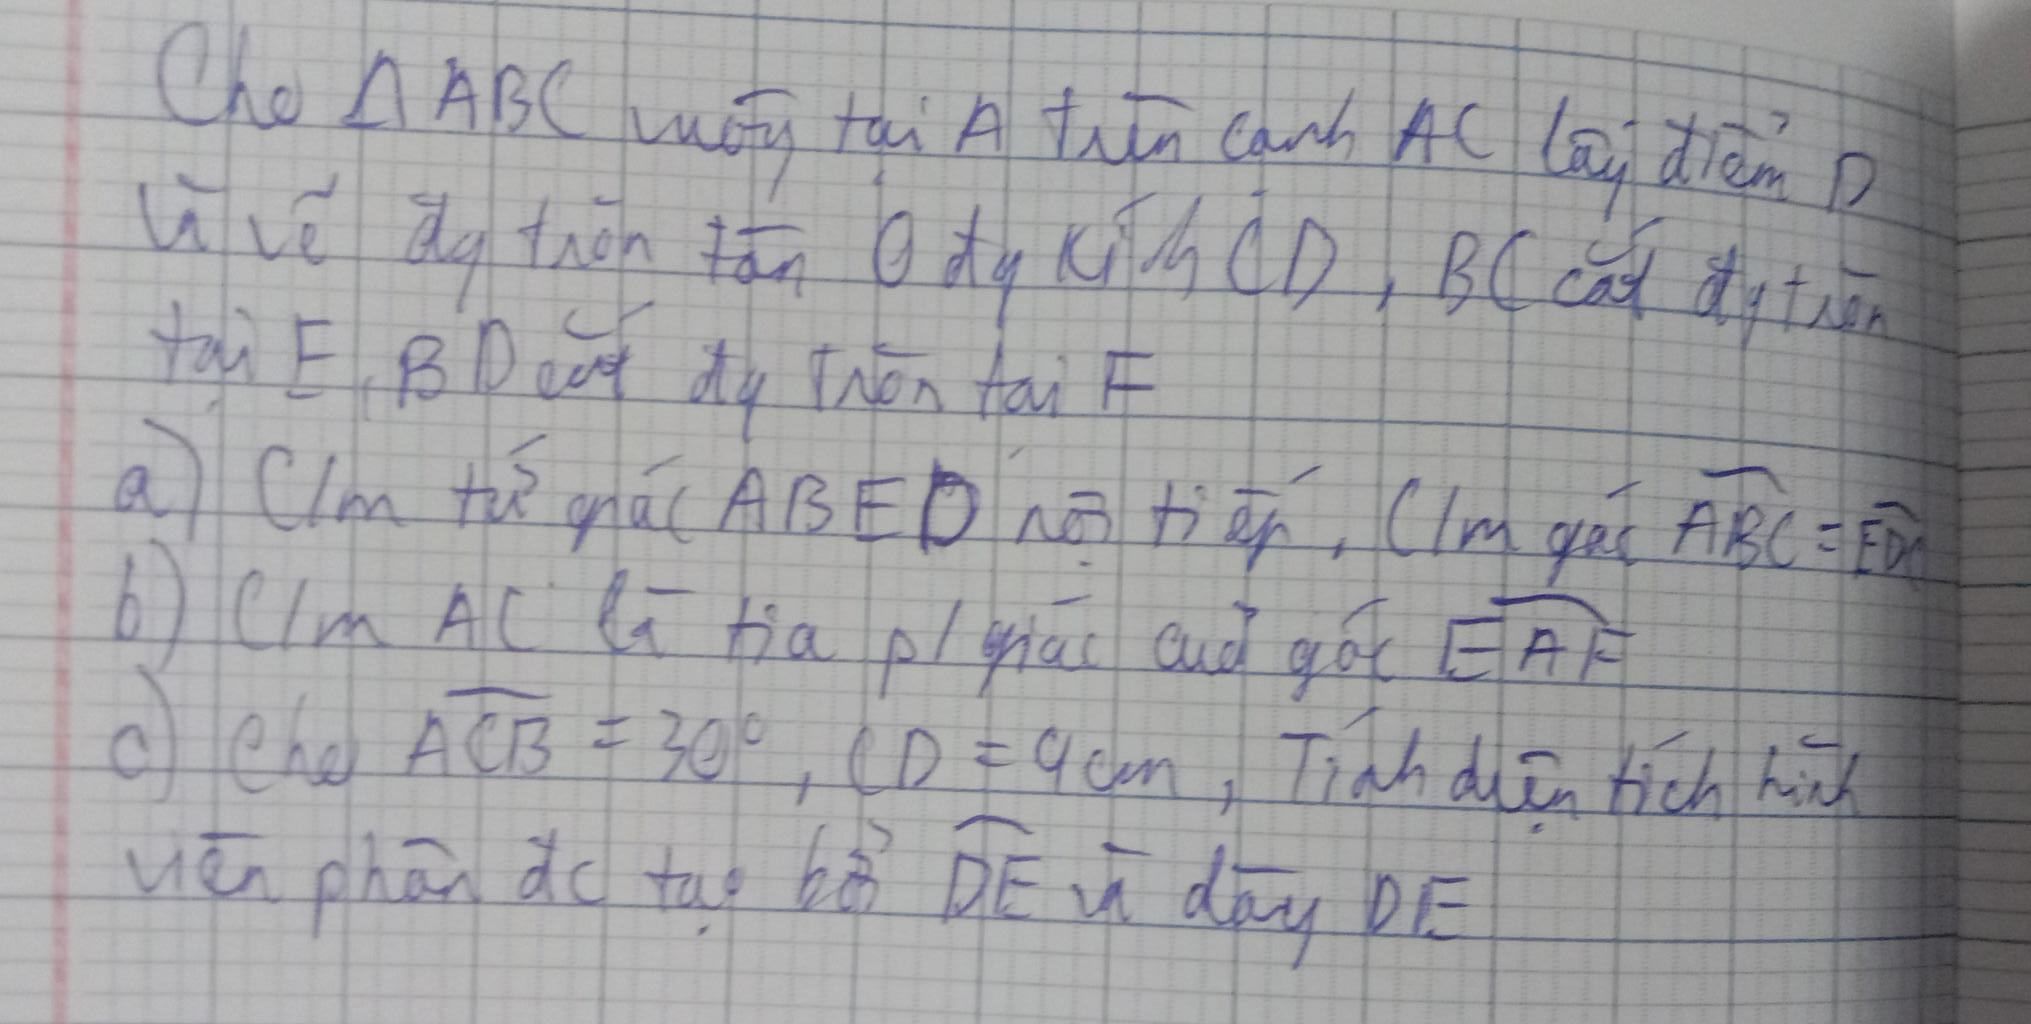 Cho ΔABC vuông tại A trên cạnh AC lấy điểm D
và vẽ đg tròn tâm O đg kính CD, BC cắt đg tròn
tại E, BD cắt đg tròn tại F
a) C/m tứ giác ABED nội tiếp, C/m góc ABC = EDC
b) C/m AC là tia p/giác của góc EAF
c) Cho ACB = 30°, CD = 4cm, Tính diện tích hình
viên phân đc tạo bởi DE và dây DE